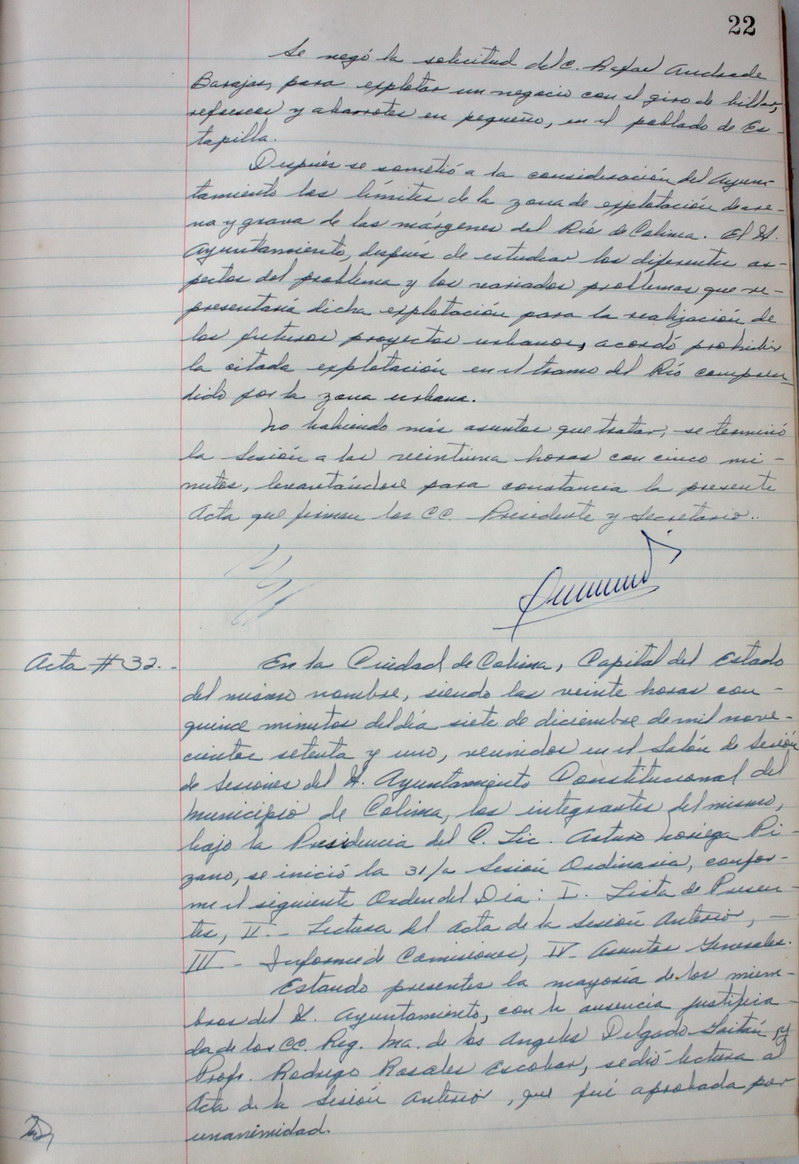 22
Se negó la solicitud del C. Rafael Andrade
Barajas, para explotar un negocio con el giro de billar,
refrescos y abarrotes en pequeño, en el poblado de Es-
tapilla.
Después se sometió a la consideración del Ayun-
tamiento los límites de la zona de explotación de are-
na y grava de las márgenes del Río de Colima. El H.
Ayuntamiento, después de estudiar los diferentes as-
pectos del problema y los variados problemas que re-
presentaría dicha explotación para la realización de
los futuros proyectos urbanos, acordó prohibir
la citada explotación en el tramo del Río compren-
dido por la zona urbana.
No habiendo más asuntos que tratar, se terminó
la Sesión a las veintiuna horas con cinco mi-
nutos, levantándose para constancia la presente
Acta que firman los CC. Presidente y Secretario..
Acta # 32.-
En la Ciudad de Colima, Capital del Estado
del mismo nombre, siendo las veinte horas con -
quince minutos del día siete de diciembre de mil nove-
cientos setenta y uno, reunidos en el Salón de Sesión
de Sesiones del H. Ayuntamiento Constitucional del
Municipio de Colima, los integrantes del mismo,
bajo la Presidencia del C. Lic. Arturo Noriega Pi-
zano, se inició la 31/a Sesión Ordinaria, confor-
me el siguiente Orden del Día: I. Lista de Presen-
tes, II.- Lectura del Acta de la Sesión Anterior, -
III- Informe de Comisiones, IV- Asuntos Generales.
Estando presentes la mayoría de los miem-
bros del H. Ayuntamiento, con la ausencia justifica-
da de los CC. Reg. Ma. de los Angeles Delgado Gaitán y
Profr. Rodrigo Rosales Escobar, se dió lectura al
Acta de la Sesión Anterior, que fué aprobada por
unanimidad.